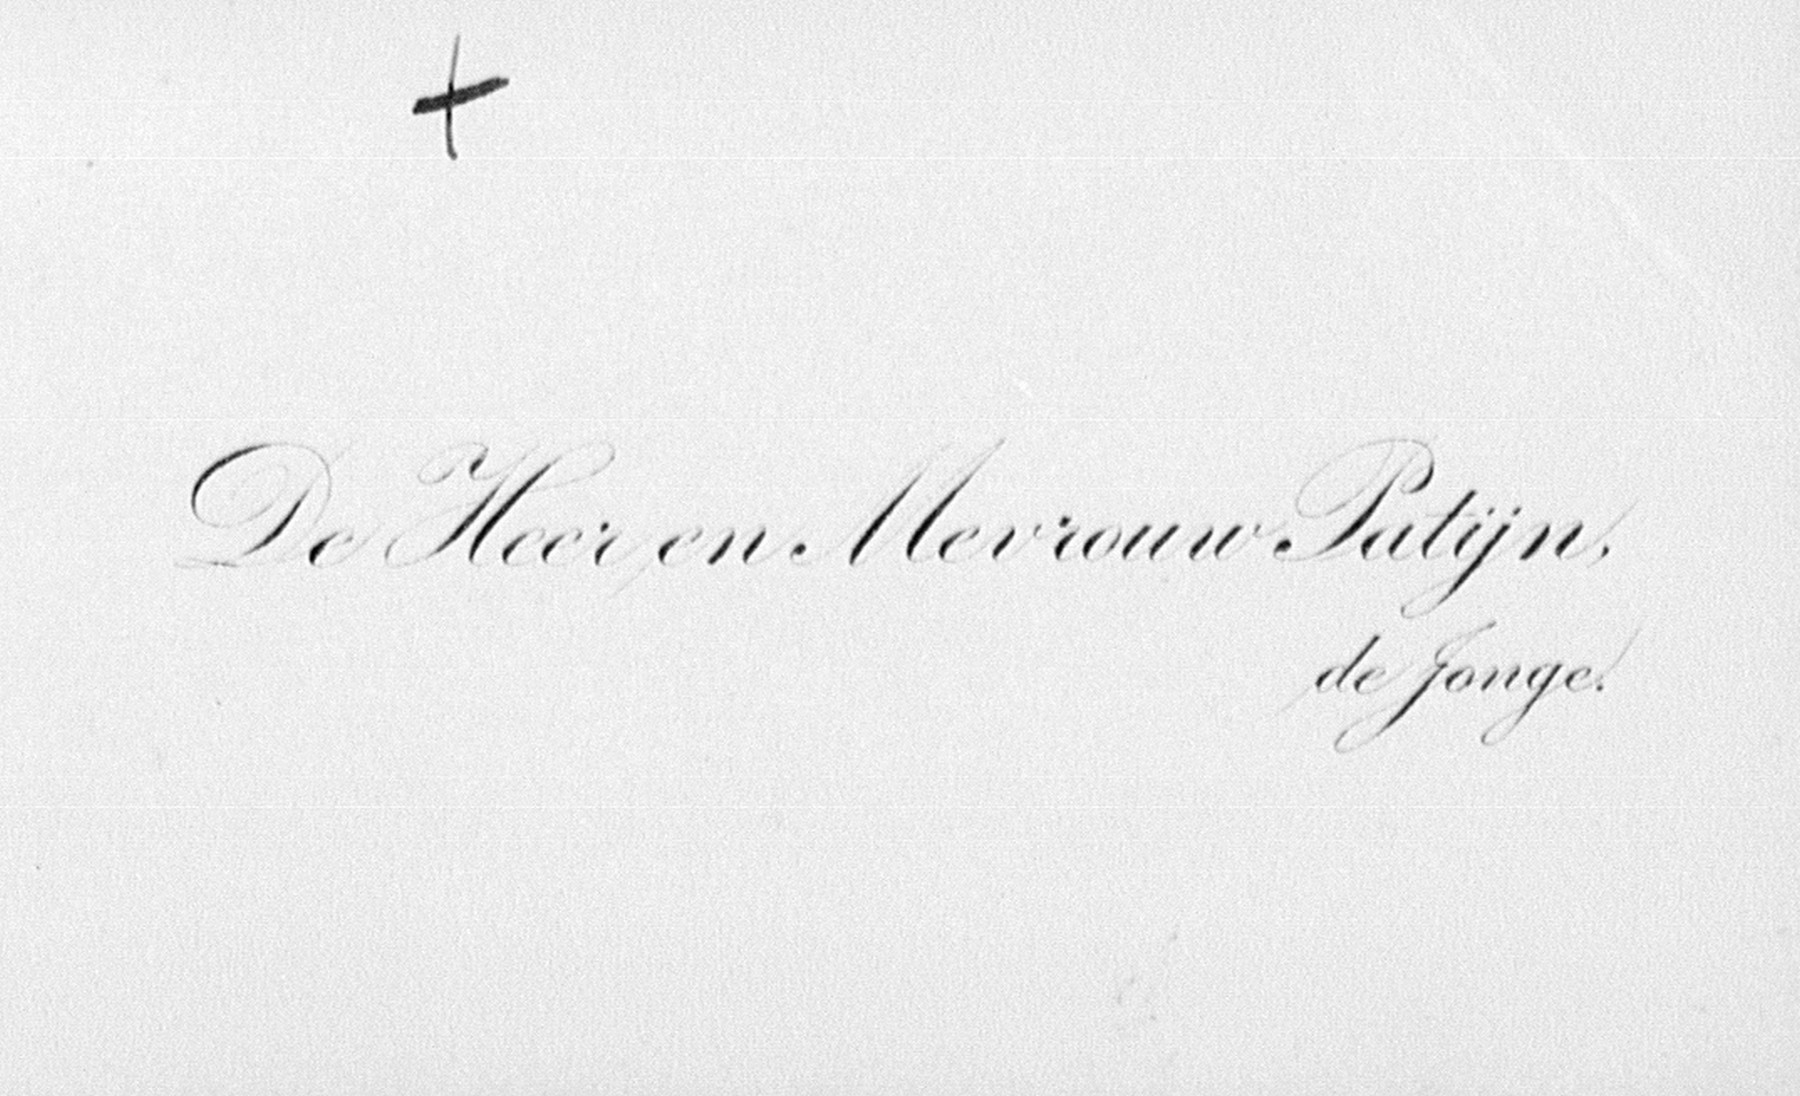 De Heer en Mevrouw Patijn,
de Jonge.